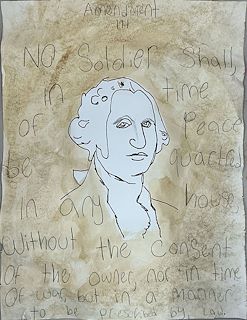 Amendment
III
NO Soldier Shall,
in time
of Peace
be quarted
in any house
Without the Consent
Of the owner, nor in time
Of war, but in a manner
to be prescribed by law